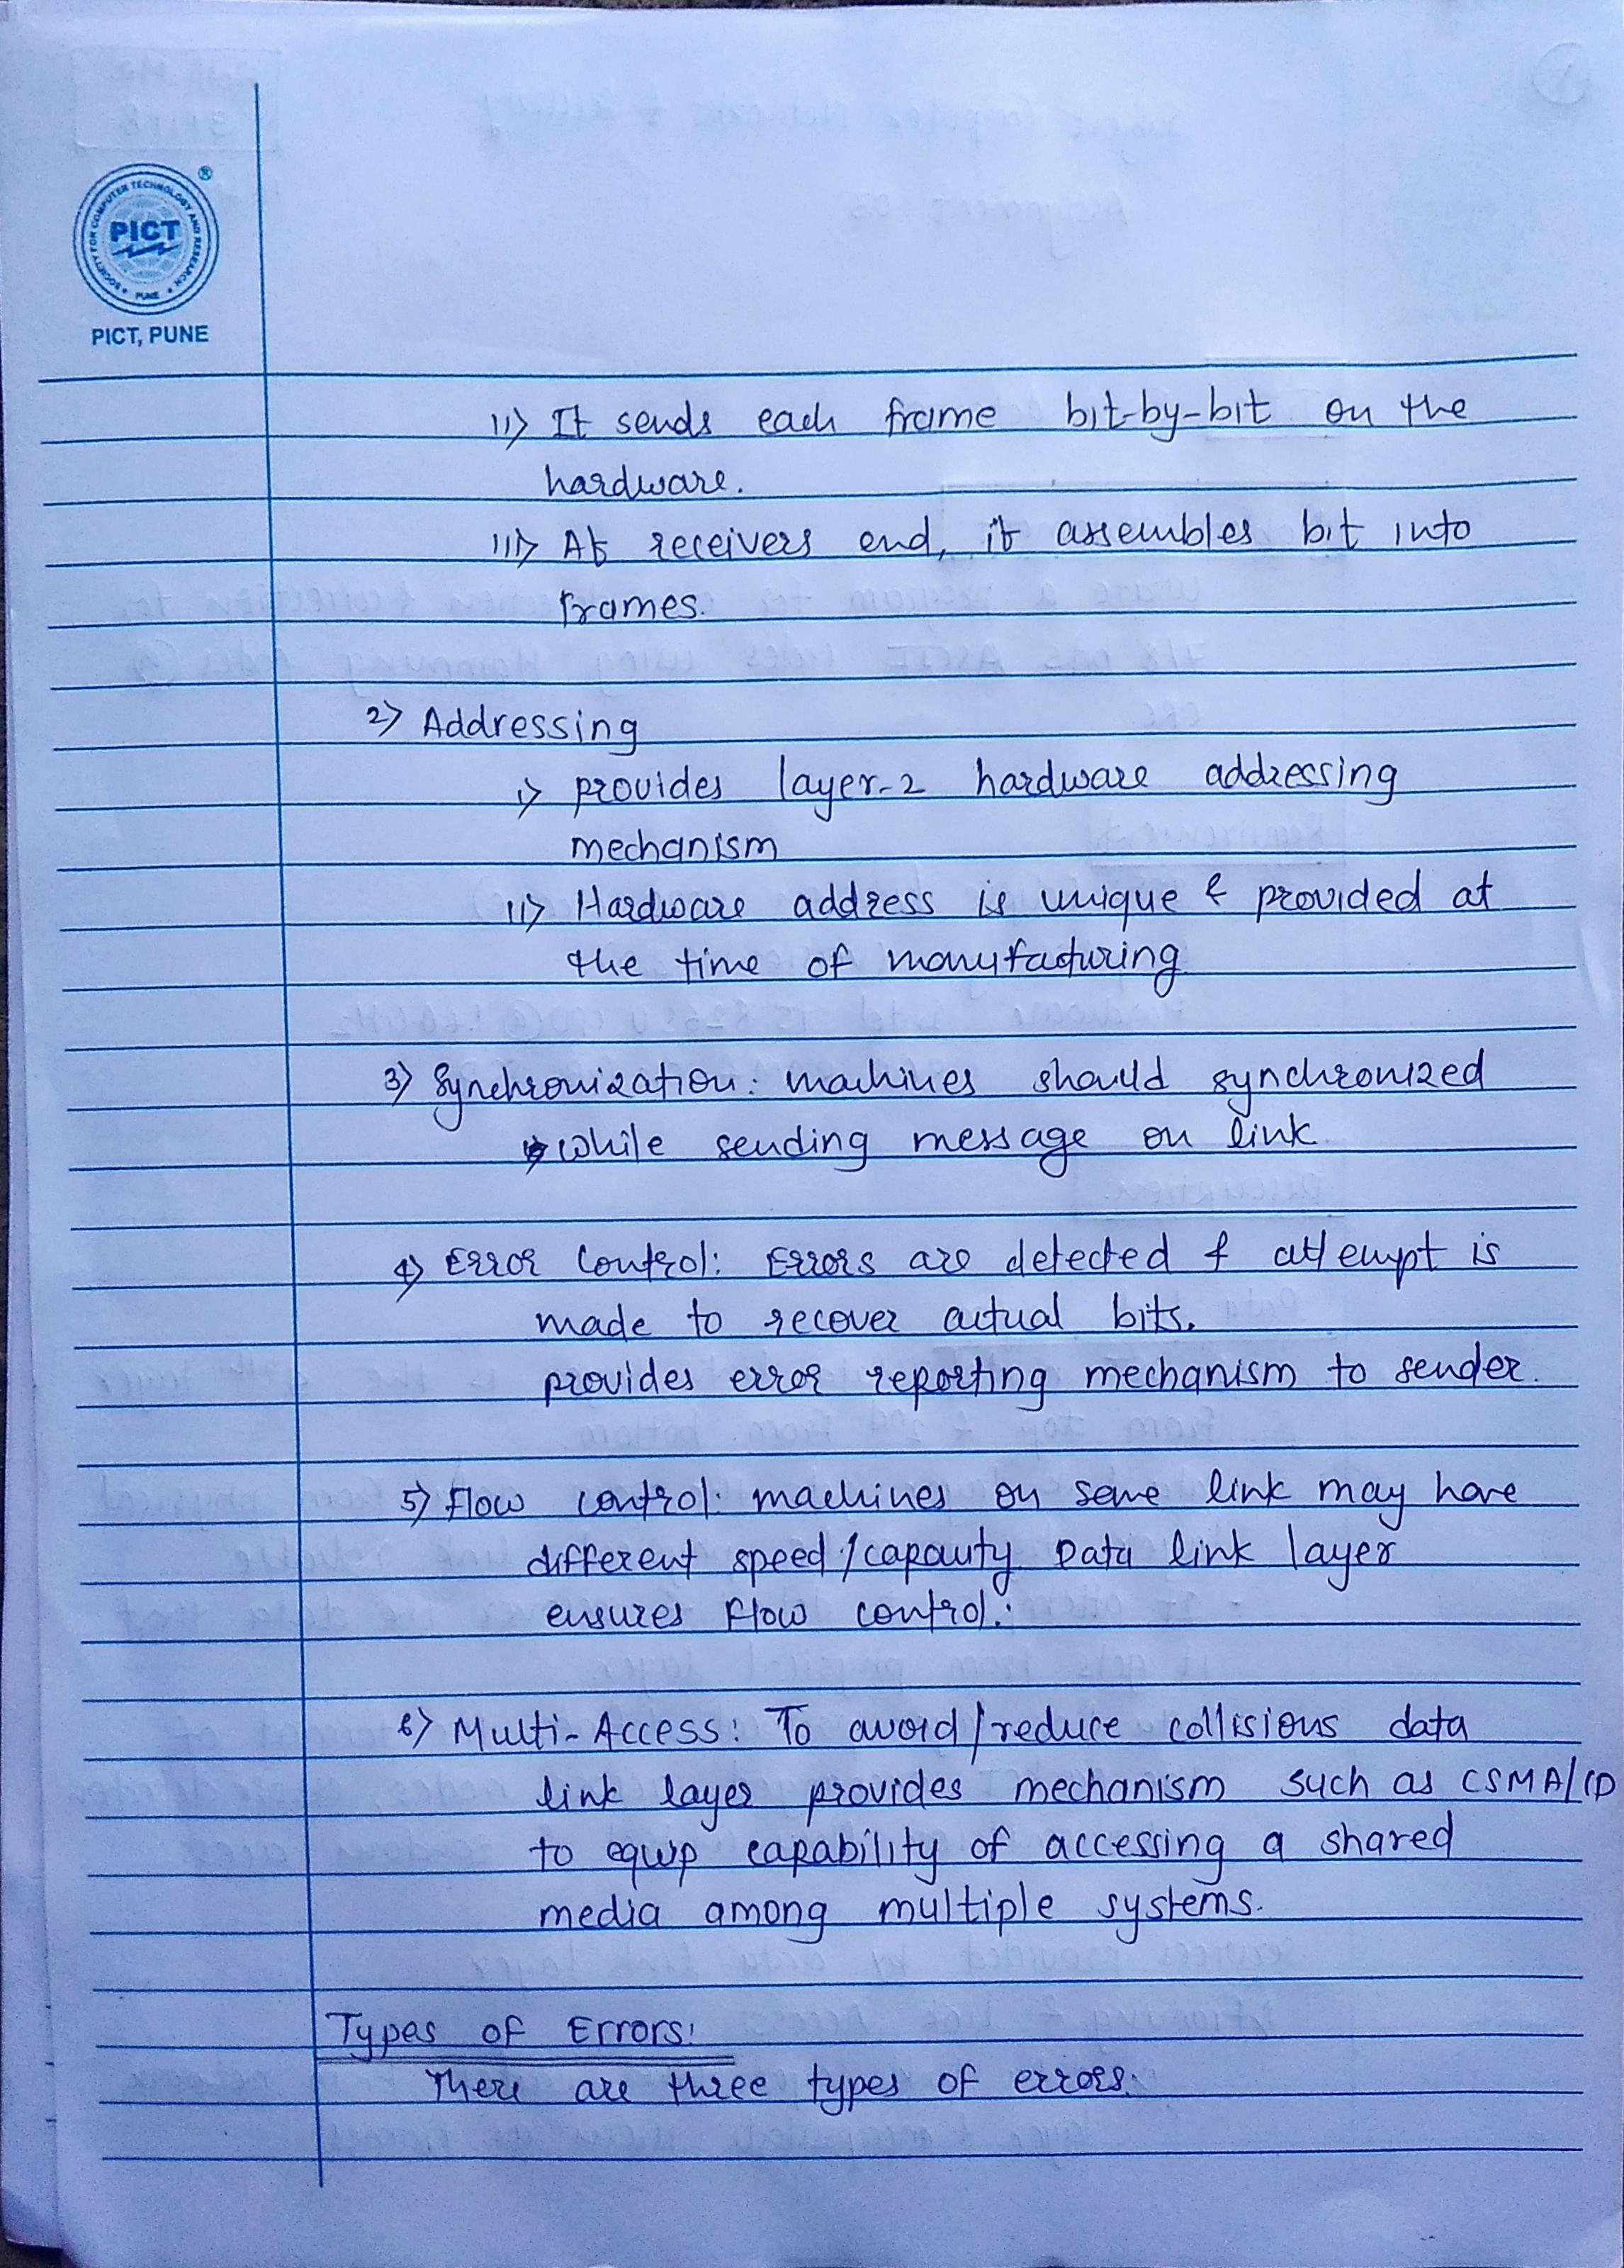 SOCIETY FOR COMPUTER TECHNOLOGY AND RESEARCH
PICT
PUNE
®
PICT, PUNE
ii) It sends each frame bit-by-bit on the
hardware.
iii) At receivers end, it assembles bit into
frames.
2) Addressing
i) provides layer-2 hardware addressing
mechanism
ii) Hardware address is unique & provided at
the time of manufacturing
3) Synchronization: machines should synchronized
while sending message on link
4) Error Control: Errors are detected & attempt is
made to recover actual bits.
provides error reporting mechanism to sender.
5) Flow control: machines on same link may have
different speed/capacity. Data link layer
ensures flow control.
6) Multi-Access: To avoid/reduce collisions data
link layer provides mechanism such as CSMA/CD
to equip capability of accessing a shared
media among multiple systems.
Types of Errors:
There are three types of errors.